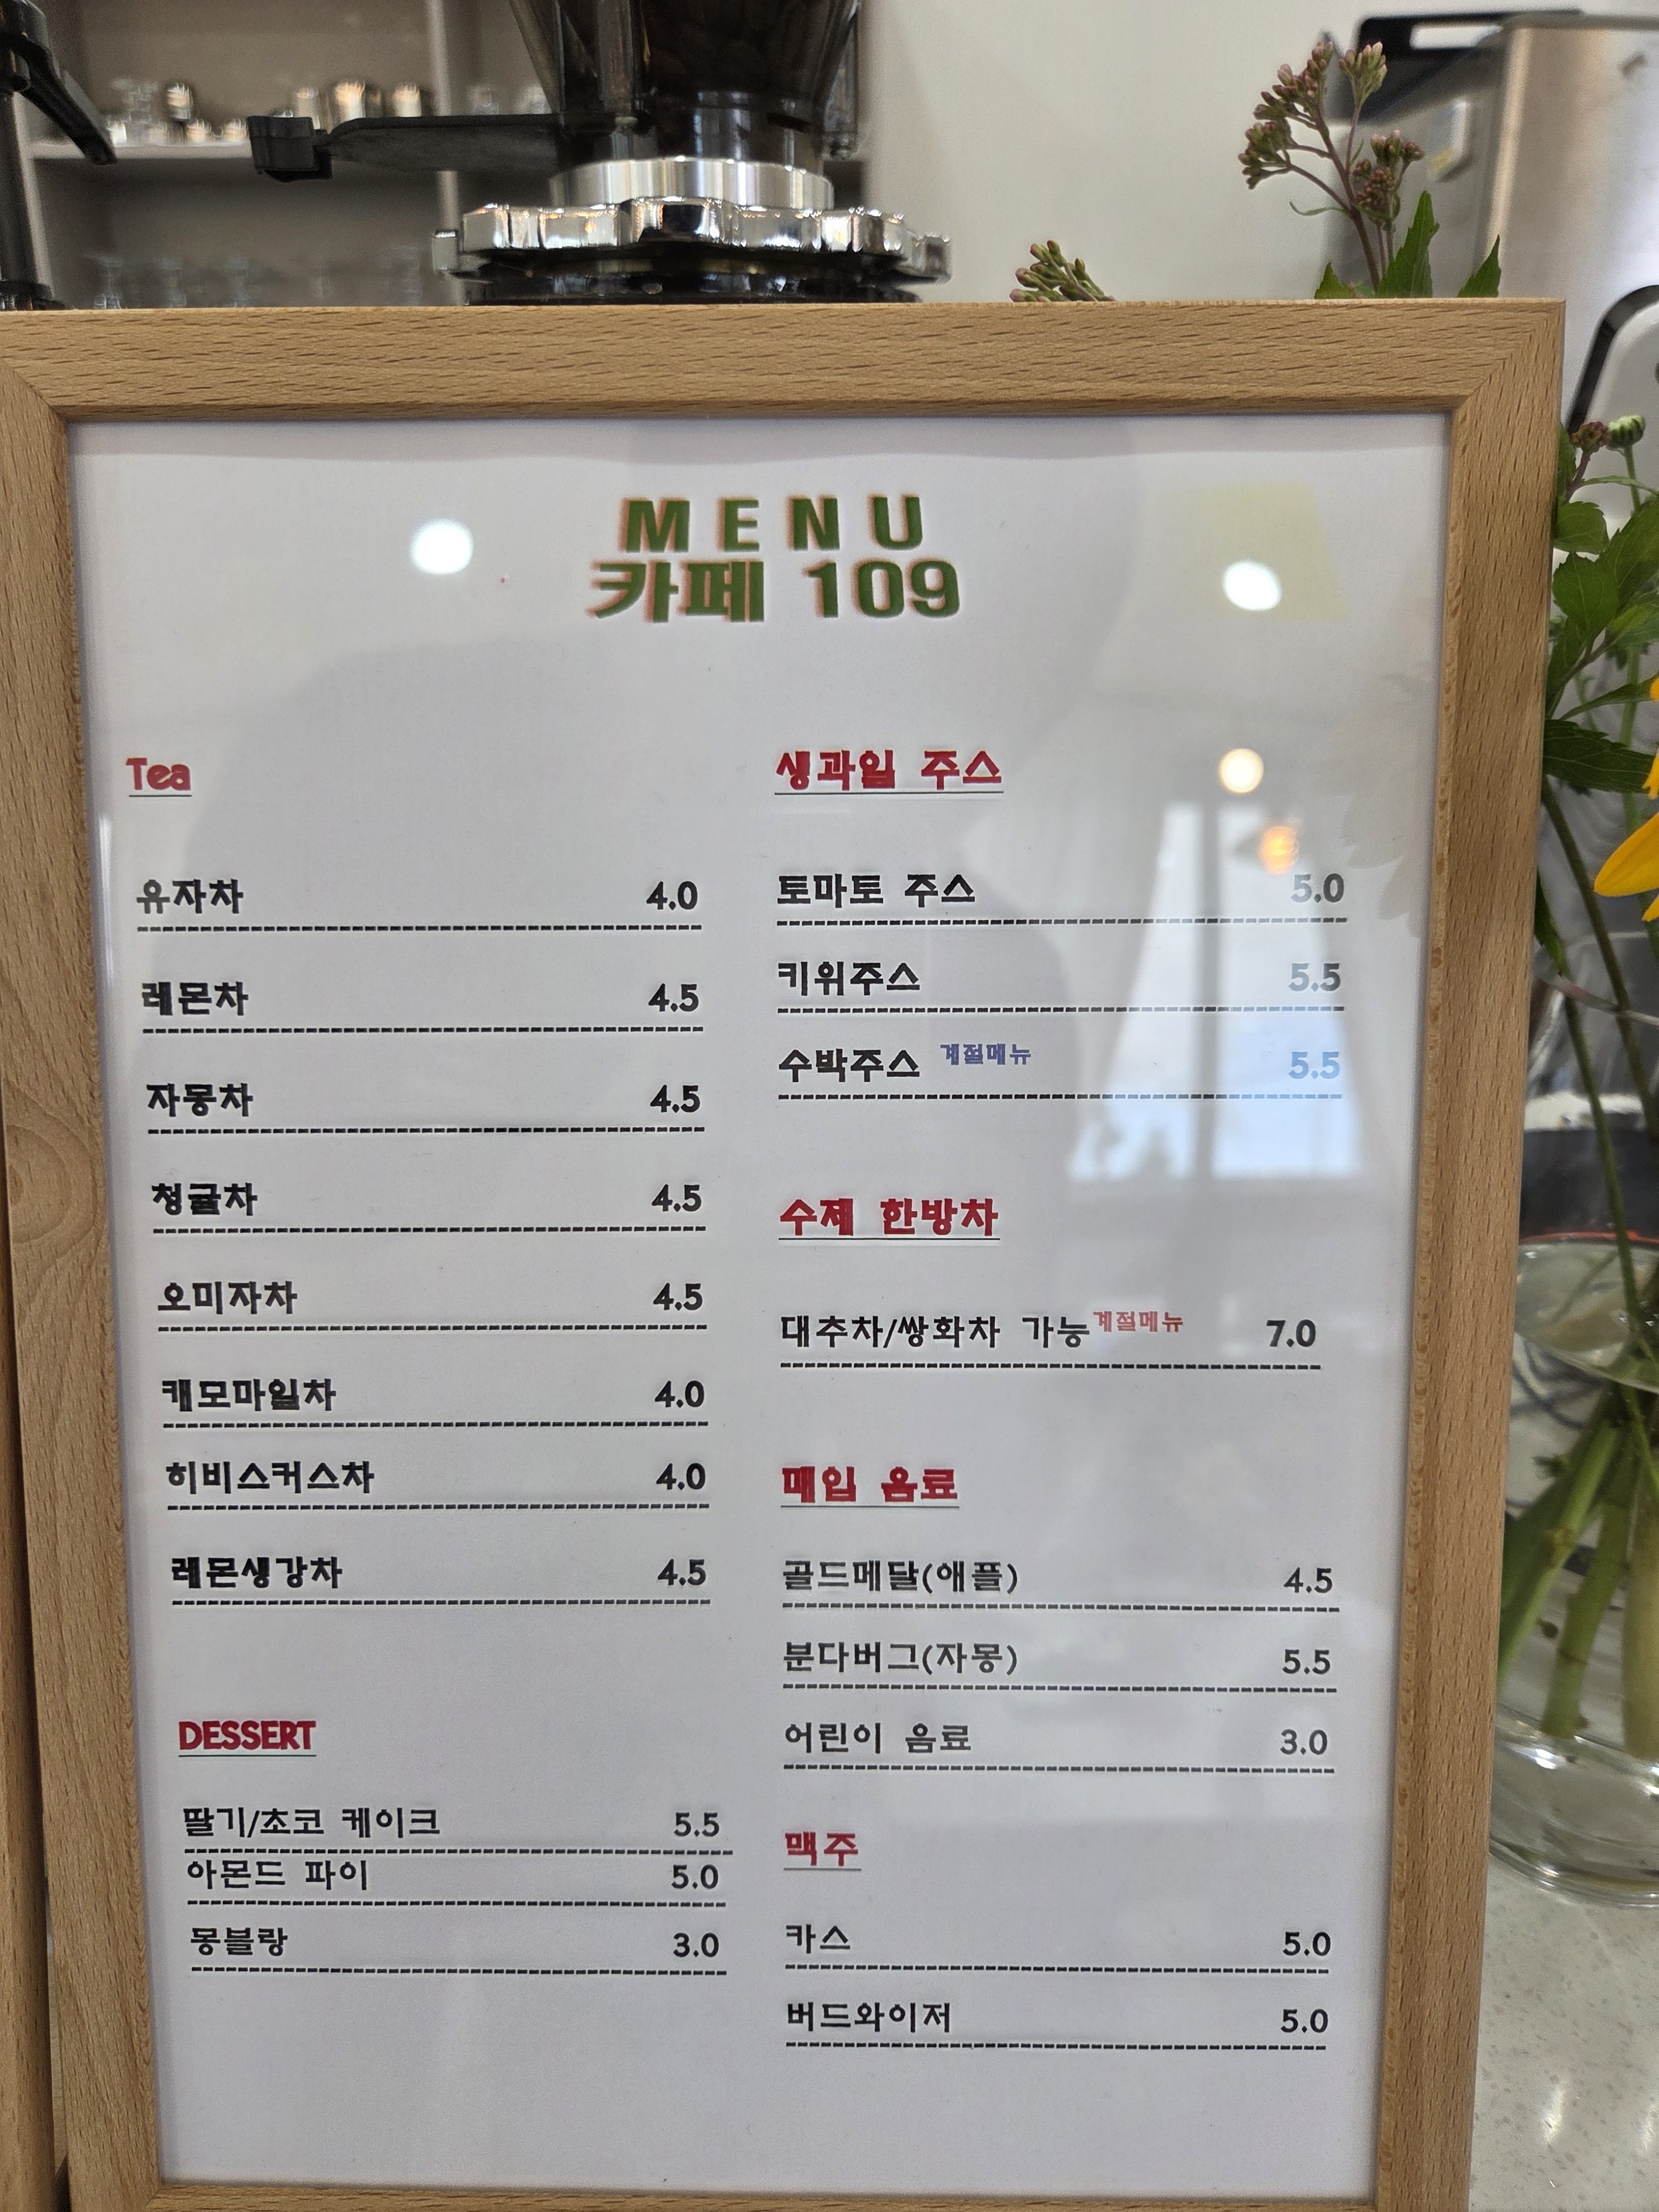 MENU
카페 109
Tea
유자차 4.0
레몬차 4.5
자몽차 4.5
청귤차 4.5
오미자차 4.5
캐모마일차 4.0
히비스커스차 4.0
레몬생강차 4.5
DESSERT
딸기/초코 케이크 5.5
아몬드 파이 5.0
몽블랑 3.0
생과일 주스
토마토 주스 5.0
키위주스 5.5
수박주스 계절메뉴 5.5
수제 한방차
대추차/쌍화차 가능 계절메뉴 7.0
매입 음료
골드메달(애플) 4.5
분다버그(자몽) 5.5
어린이 음료 3.0
맥주
카스 5.0
버드와이저 5.0